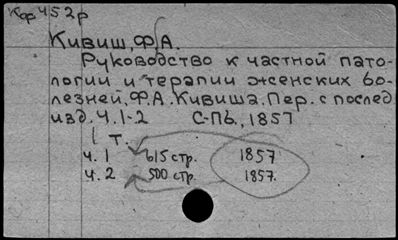 Кор 452р
Кивиш, Ф. А.
Руководство к частной пато-
логии и терапии женских бо-
лезней, Ф.А. Кивиша. Пер. с послед.
изд. Ч. 1-2 С-Пб., 1857
1 т.
ч. 1 615 стр. 1857
ч. 2 500 стр. 1857.